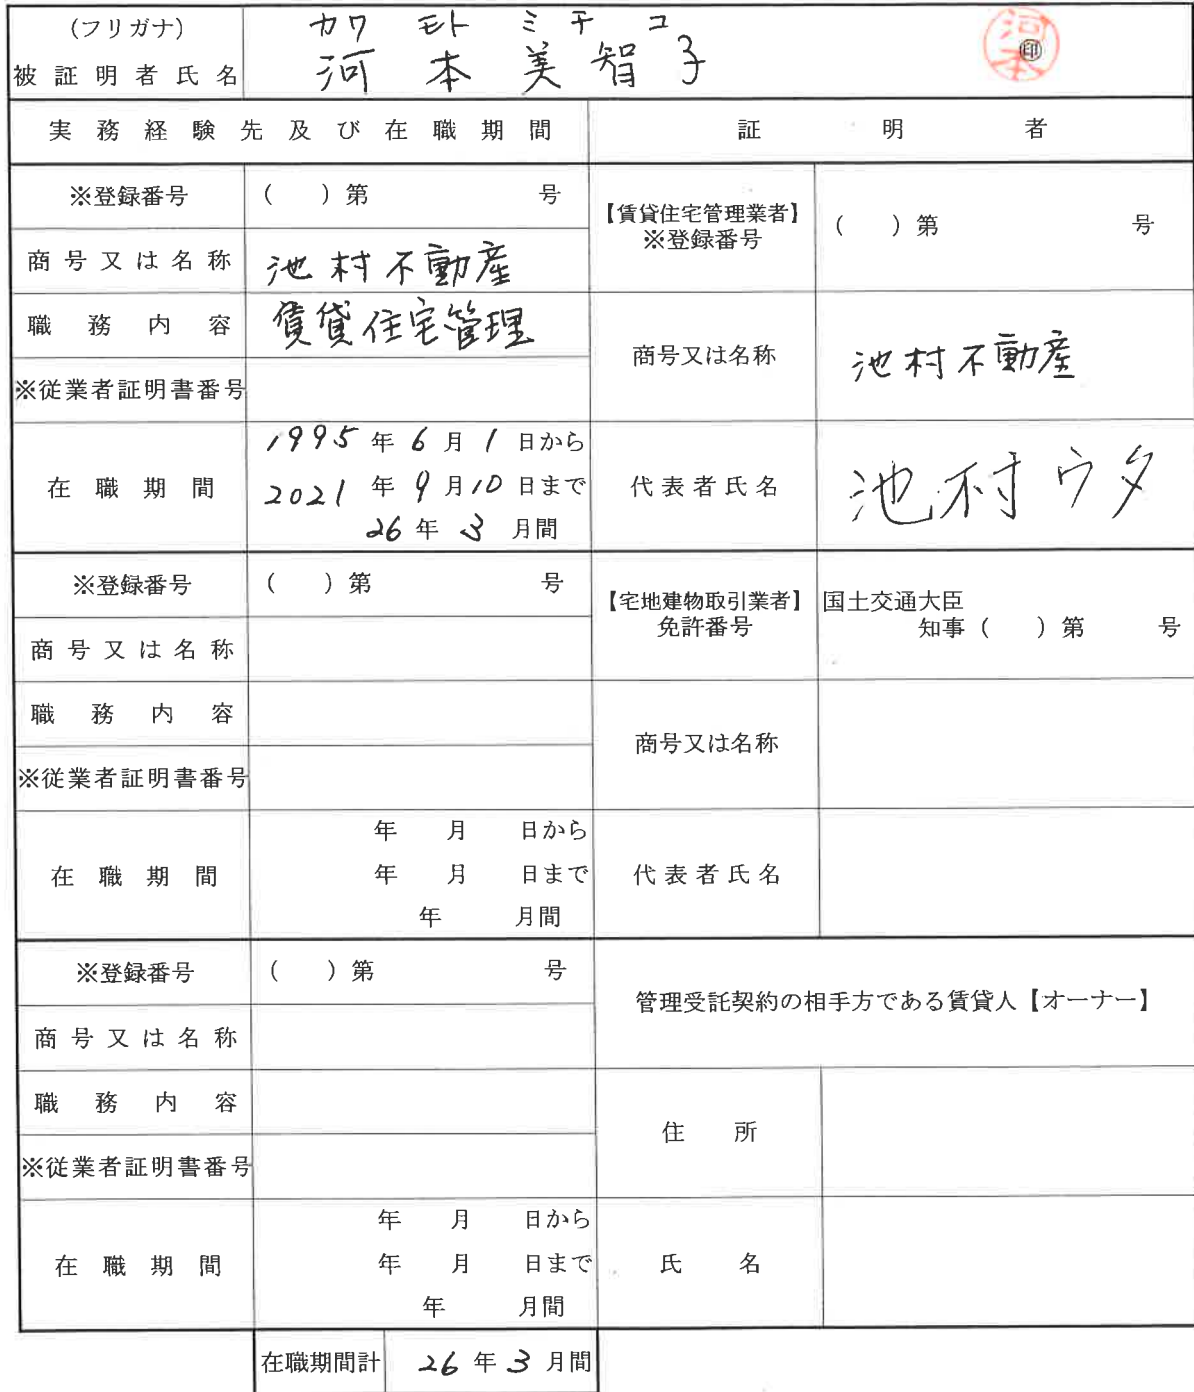 (フリガナ) カワ モト ミチコ
被証明者氏名 河本美智子 ㊞ 河本
実務経験先及び在職期間 証明者
※登録番号 ( )第 号
商号又は名称 池村不動産
職務内容 賃貸住宅管理
※従業者証明書番号
在職期間 1995年6月1日から
2021年9月10日まで
26年3月間
【賃貸住宅管理業者】
※登録番号 ( )第 号
商号又は名称 池村不動産
代表者氏名 池村ウタ
※登録番号 ( )第 号
商号又は名称
職務内容
※従業者証明書番号
在職期間 年 月 日から
年 月 日まで
年 月間
【宅地建物取引業者】 国土交通大臣
免許番号 知事( )第 号
商号又は名称
代表者氏名
※登録番号 ( )第 号
商号又は名称
職務内容
※従業者証明書番号
在職期間 年 月 日から
年 月 日まで
年 月間
管理受託契約の相手方である賃貸人【オーナー】
住所
氏名
在職期間計 26年3月間